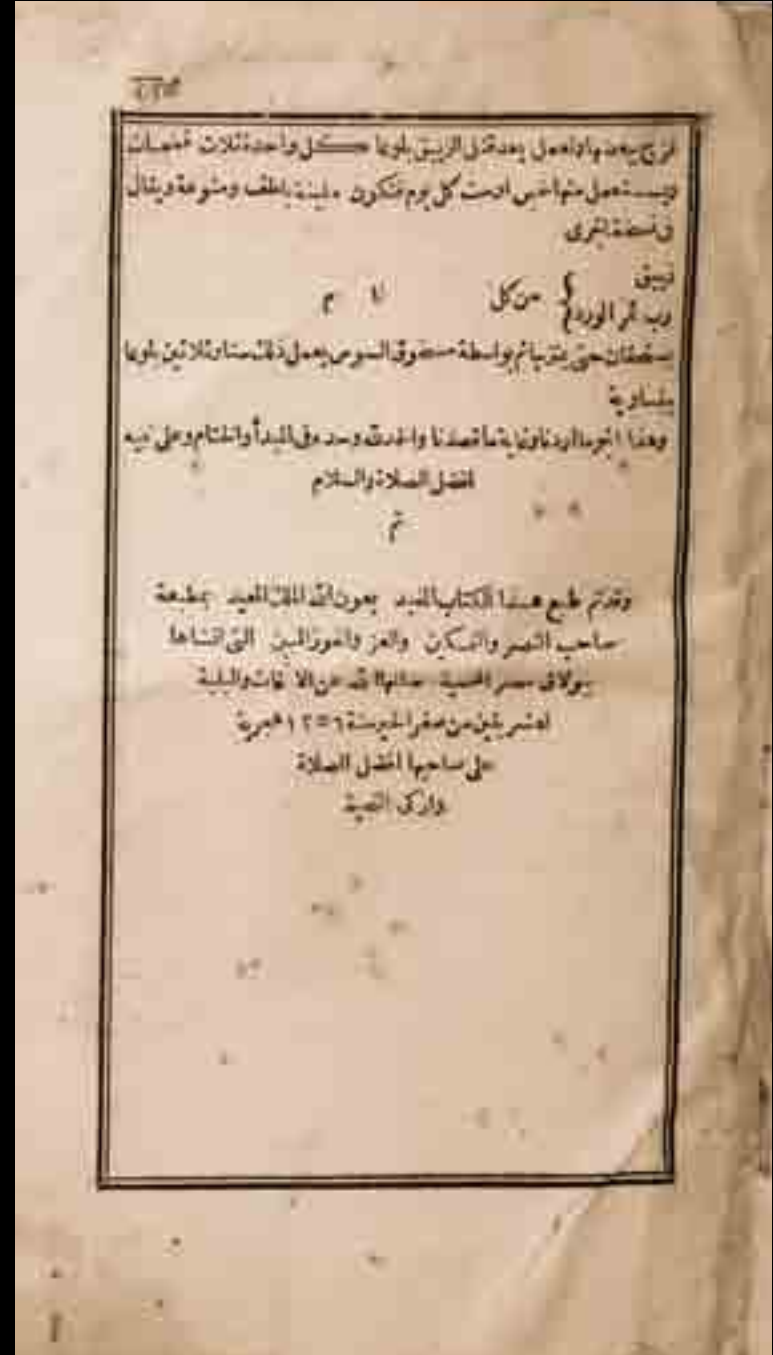 بعضها ويعمل بعد قتل الزيبق بلوعا كل واحدة ثلاث قمحات
ويستعمل منها خمس ادست كل يوم فتكون ملينة بلطف ومنوعة ويقال
فى نسخة اخرى
زيبق
رب ثمر الورد } من كل م
يسحقان حتى يمتزجا ثم بواسطة مسحوق السوس يعمل ذلك ستا وثلاثين بلوعا
متساوية
وهذا اخر ما اردنا ونهاية ما قصدنا والحمد لله وحده فى المبدأ والختام وعلى نبيه
افضل الصلاة والسلام
تم
وقد تم طبع هذا الكتاب المفيد بعون الله الملك المعيد بمطبعة
صاحب النصر والتمكين والعز والفوز المبين التى انشاها
ببولاق مصر المحمية صانها الله عن الافات والبلية
لعشر بقين من صفر الخير سنة ١٢٥٦ هجرية
على صاحبها افضل الصلاة
وازكى التحية